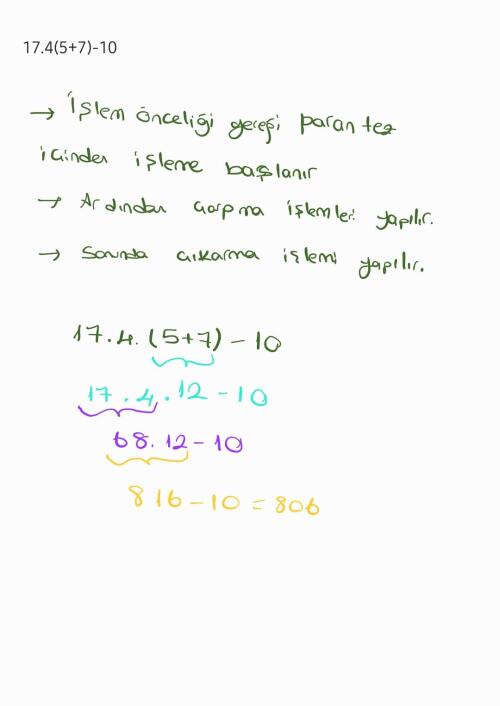 17.4(5+7)-10
→ İşlem önceliği gereği parantez
içinden işleme başlanır
→ Ardından çarpma işlemleri yapılır.
→ Sonunda çıkarma işlemi yapılır.
17.4.(5+7)-10
17.4.12-10
68.12-10
816-10=806